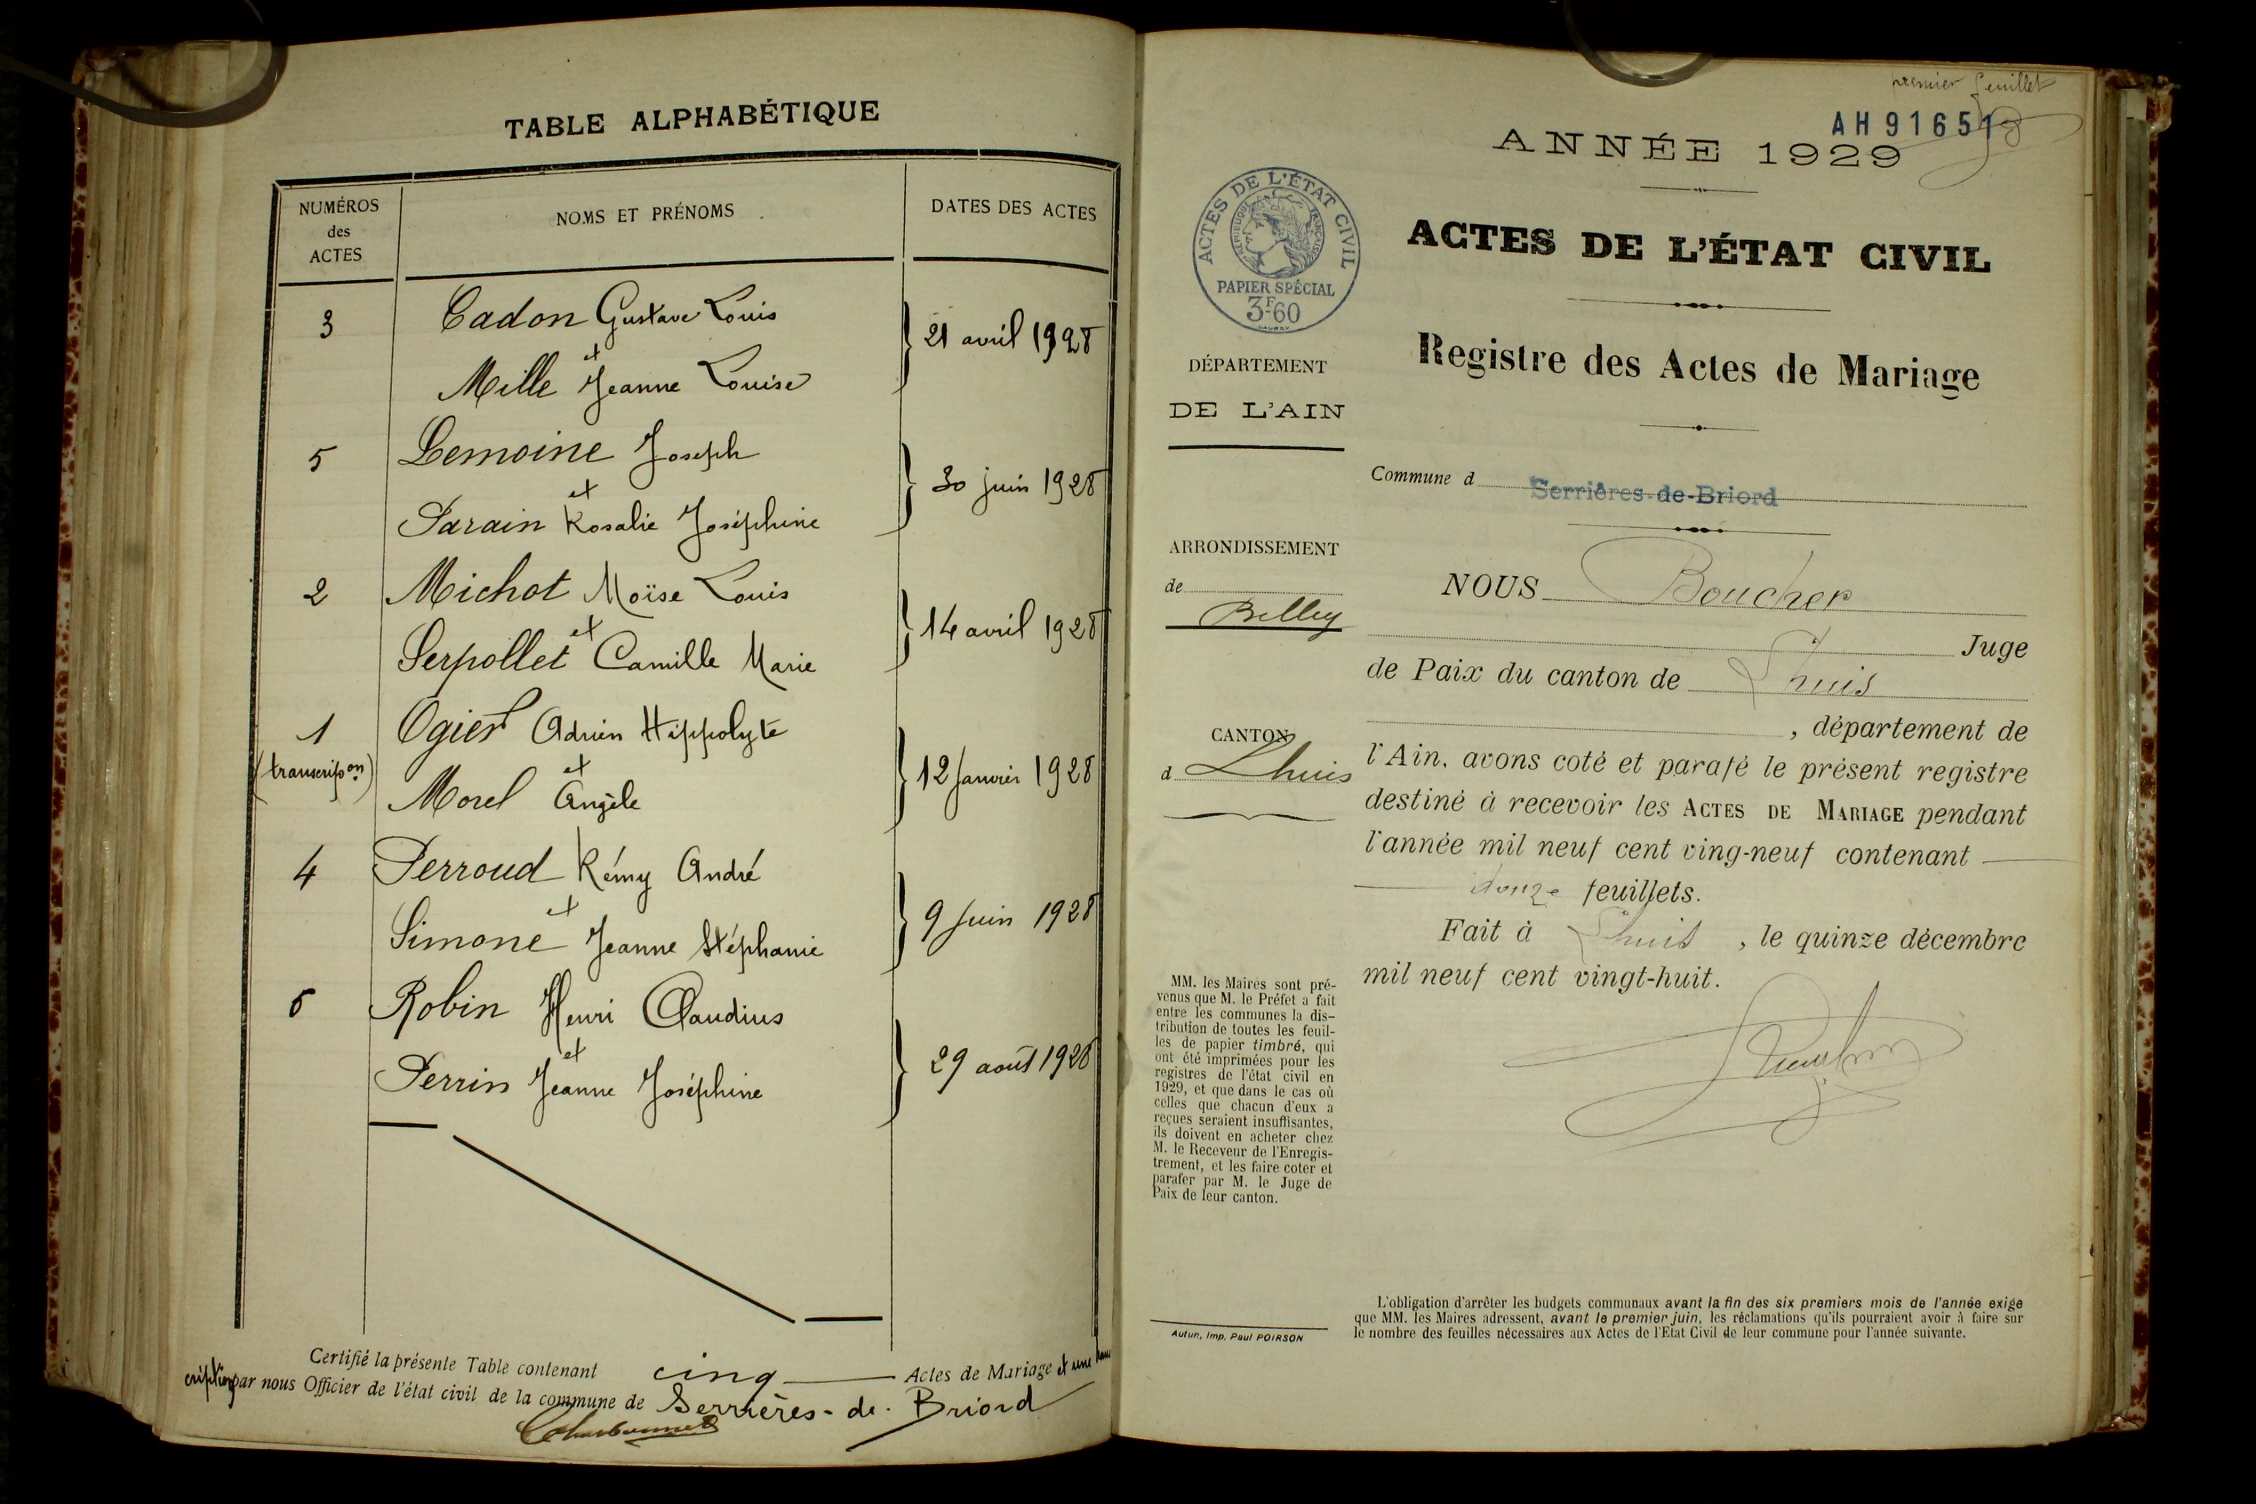 TABLE ALPHABÉTIQUE
NUMÉROS
des
ACTES
NOMS ET PRÉNOMS
DATES DES ACTES
3 Cadon Gustave Louis
et
Mille Jeanne Louise
21 avril 1928
5 Lemoine Joseph
et
Parain Rosalie Joséphine
30 juin 1928
2 Michot Moïse Louis
et
Serpollet Camille Marie
14 avril 1928
1 Ogier Adrien Hippolyte
(transcripon)
et
Morel Angèle
12 Janvier 1928
4 Perroud Rémy André
et
Simone Jeanne Stéphanie
9 Juin 1928
6 Robin Henri Claudius
et
Perrin Jeanne Joséphine
29 août 1928
Certifié la présente Table contenant cinq Actes de Mariage et une trans
cription par nous Officier de l'état civil de la commune de Serrières-de-Briord
Charbonnet
premier feuillet
AH 91651
ANNÉE 1929
ACTES DE L'ÉTAT CIVIL
RÉPUBLIQUE FRANÇAISE
PAPIER SPÉCIAL
3F.60
ACTES DE L'ÉTAT CIVIL
Registre des Actes de Mariage
DÉPARTEMENT
DE L'AIN
Commune d Serrières-de-Briord
ARRONDISSEMENT
de Belley
CANTON
d Lhuis
NOUS Boucher
Juge
de Paix du canton de Lhuis
, département de
l'Ain, avons coté et parafé le présent registre
destiné à recevoir les ACTES DE MARIAGE pendant
l'année mil neuf cent ving-neuf contenant
douze feuillets.
Fait à Lhuis , le quinze décembre
mil neuf cent vingt-huit.
MM. les Maires sont pré-
venus que M. le Préfet a fait
entre les communes la dis-
tribution de toutes les feuil-
les de papier timbré, qui
ont été imprimées pour les
registres de l'état civil en
1929, et que dans le cas où
celles que chacun d'eux a
reçues seraient insuffisantes,
ils doivent en acheter chez
M. le Receveur de l'Enregis-
trement, et les faire coter et
parafer par M. le Juge de
Paix de leur canton.
Autun, Imp. Paul POIRSON
L'obligation d'arrêter les budgets communaux avant la fin des six premiers mois de l'année exige
que MM. les Maires adressent, avant le premier juin, les réclamations qu'ils pourraient avoir à faire sur
le nombre des feuilles nécessaires aux Actes de l'Etat Civil de leur commune pour l'année suivante.